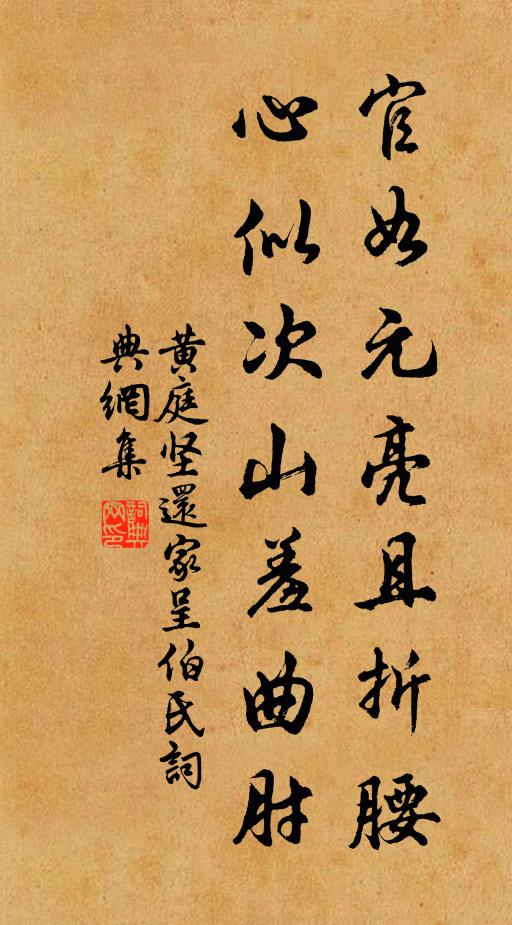 官如元亮且折腰
心似次山羞曲肘
黄庭坚還家呈伯氏詞
典網集
詞典
网印